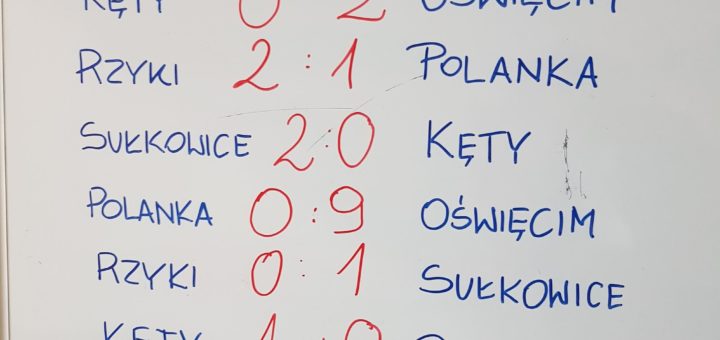 KĘTY 0 2 OŚWIĘCIM
RZYKI 2 : 1 POLANKA
SUŁKOWICE 2:0 KĘTY
POLANKA 0:9 OŚWIĘCIM
RZYKI 0:1 SUŁKOWICE
KĘTY